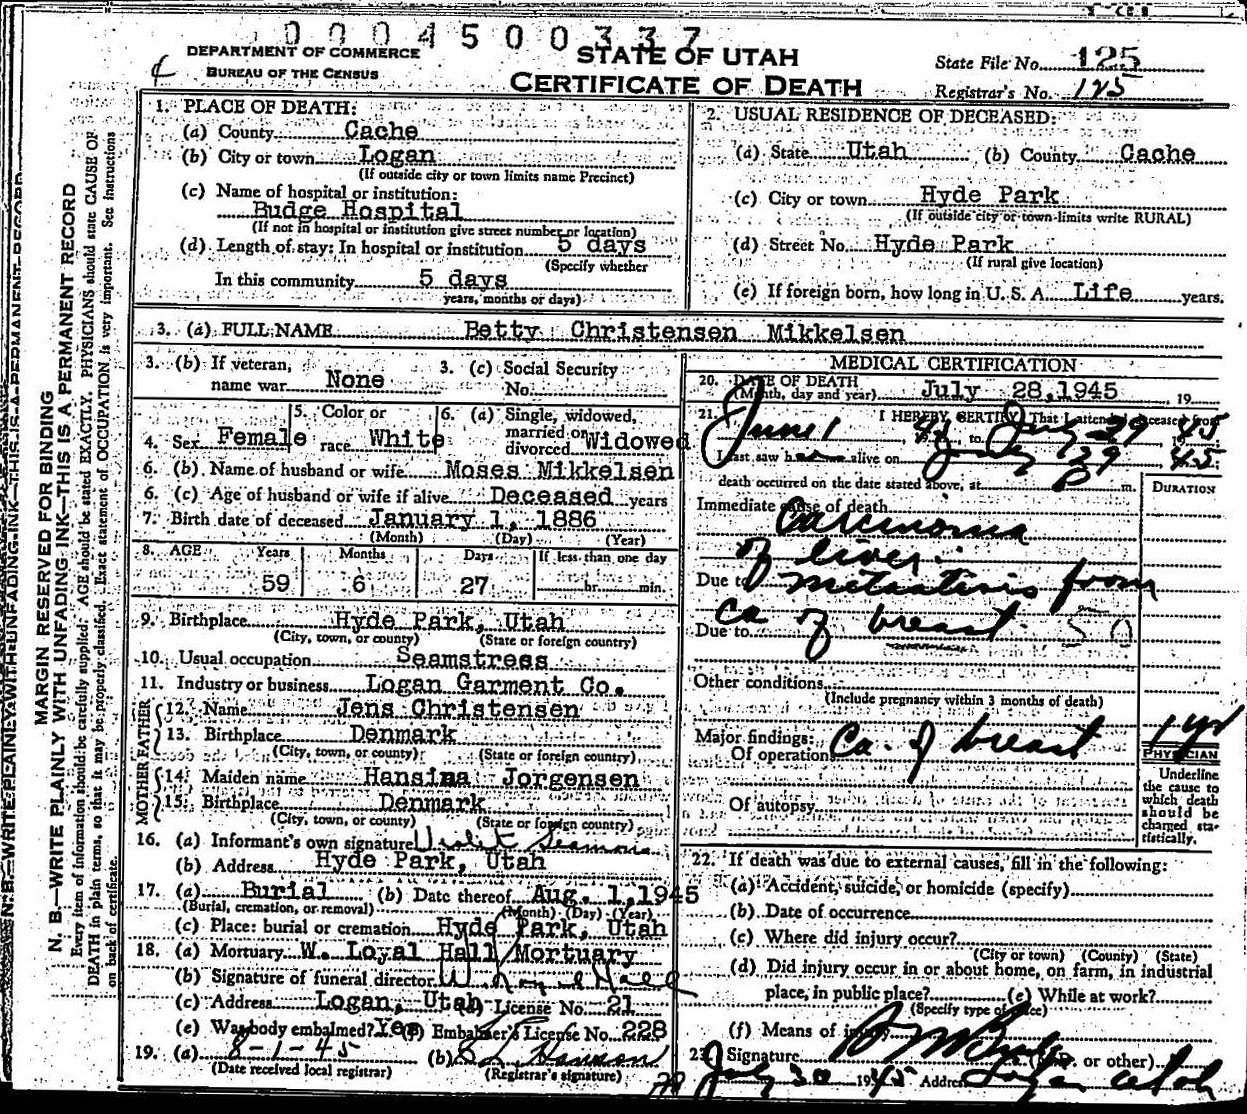 0004500337
DEPARTMENT OF COMMERCE
BUREAU OF THE CENSUS
STATE OF UTAH
CERTIFICATE OF DEATH
State File No. 125
Registrar's No. 125
MARGIN RESERVED FOR BINDING
N. B.—WRITE PLAINLY WITH UNFADING INK—THIS IS A PERMANENT RECORD
Every item of information should be carefully supplied. AGE should be stated EXACTLY. PHYSICIANS should state CAUSE OF
DEATH in plain terms, so that it may be properly classified. Exact statement of OCCUPATION is very important. See instructions
on back of certificate.
1. PLACE OF DEATH:
(a) County Cache
(b) City or town Logan
(If outside city or town limits name Precinct)
(c) Name of hospital or institution:
Budge Hospital
(If not in hospital or institution give street number or location)
(d) Length of stay: In hospital or institution 5 days
(Specify whether
In this community 5 days
years, months or days)
2. USUAL RESIDENCE OF DECEASED:
(a) State Utah (b) County Cache
(c) City or town Hyde Park
(If outside city or town limits write RURAL)
(d) Street No. Hyde Park
(If rural give location)
(e) If foreign born, how long in U. S. A. Life years.
3. (a) FULL NAME Betty Christensen Mikkelsen
3. (b) If veteran, name war None
3. (c) Social Security No.
4. Sex Female
5. Color or race White
6. (a) Single, widowed, married or divorced Widowed
6. (b) Name of husband or wife Moses Mikkelsen
6. (c) Age of husband or wife if alive Deceased years
7. Birth date of deceased January 1, 1886
(Month) (Day) (Year)
8. AGE Years Months Days If less than one day
59 6 27 hr. min.
9. Birthplace Hyde Park, Utah
(City, town, or county) (State or foreign country)
10. Usual occupation Seamstress
11. Industry or business Logan Garment Co.
FATHER
12. Name Jens Christensen
13. Birthplace Denmark
(City, town, or county) (State or foreign country)
MOTHER
14. Maiden name Hansina Jorgensen
15. Birthplace Denmark
(City, town, or county) (State or foreign country)
16. (a) Informant's own signature Violet Seamons
(b) Address Hyde Park, Utah
17. (a) Burial (b) Date thereof Aug. 1, 1945
(Burial, cremation, or removal) (Month) (Day) (Year)
(c) Place: burial or cremation Hyde Park, Utah
18. (a) Mortuary W. Loyal Hall Mortuary
(b) Signature of funeral director W. Loyal Hall
(c) Address Logan, Utah (d) License No. 21
(e) Was body embalmed? Yes (f) Embalmer's License No. 228
19. (a) 8-1-45 (b) Hanson
(Date received local registrar) (Registrar's signature)
MEDICAL CERTIFICATION
20. DATE OF DEATH
(Month, day and year) July 28, 1945, 19
21. I HEREBY CERTIFY That I attended deceased from
June 1 45, to July 29 1945
I last saw h alive on July 29 45;
death occurred on the date stated above, at P m.
DURATION
Immediate cause of death Carcinoma
of liver
Due to metastesis from
Ca of breast 50
Due to
Other conditions
(Include pregnancy within 3 months of death)
Major findings:
Of operations Ca. of breast 1 yr
Of autopsy
PHYSICIAN
Underline
the cause to
which death
should be
charged sta-
tistically.
22. If death was due to external causes, fill in the following:
(a) Accident, suicide, or homicide (specify)
(b) Date of occurrence
(c) Where did injury occur?
(City or town) (County) (State)
(d) Did injury occur in or about home, on farm, in industrial
place, in public place? (e) While at work?
(Specify type of place)
(f) Means of injury
23. Signature (M.D. or other)
July 30 1945 Address Logan Utah